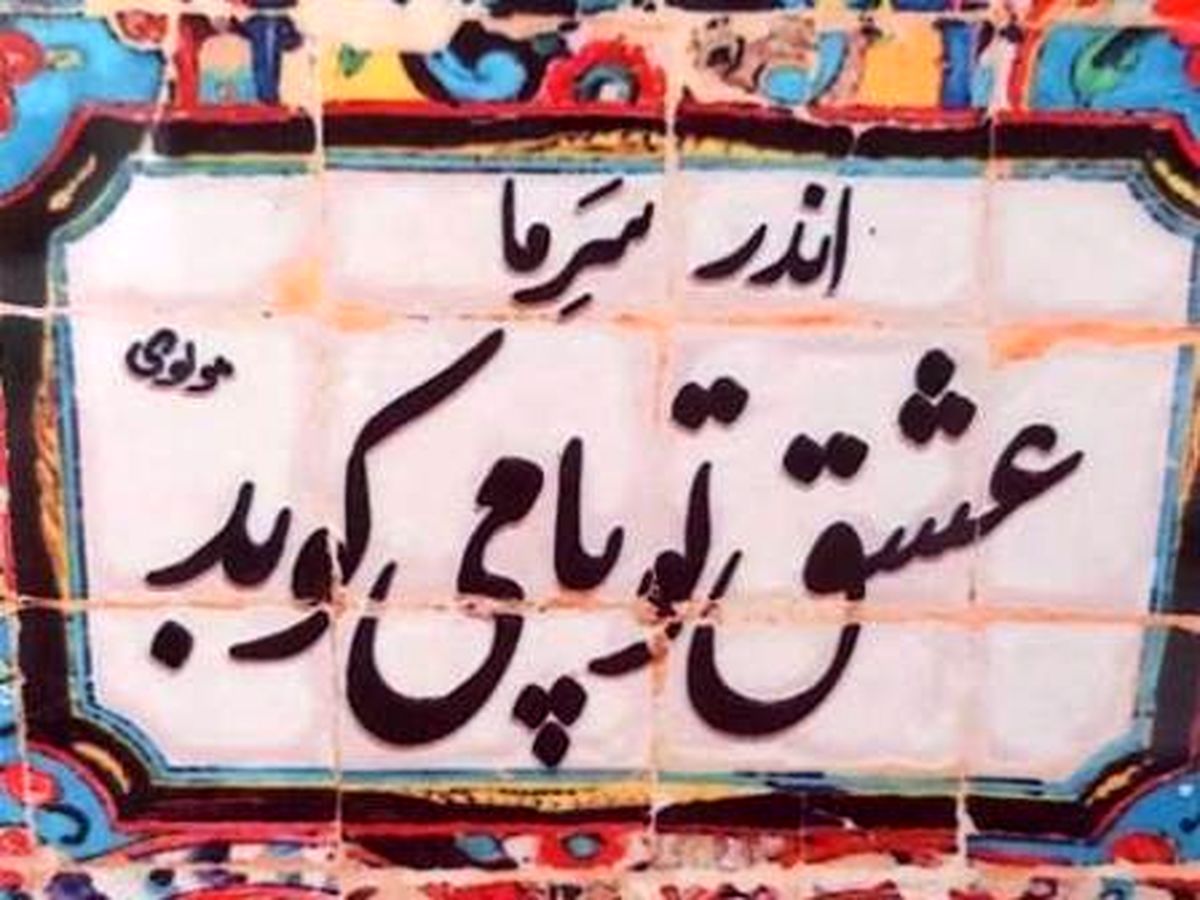 اندر سَرِ ما
عشق تو پا می کوبد
مولوی